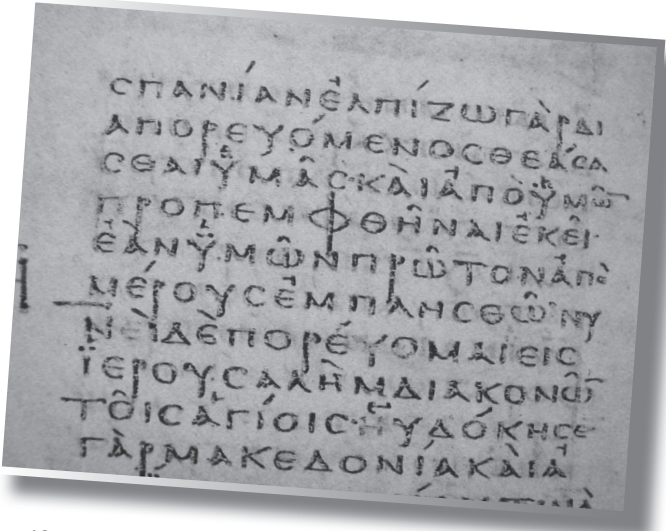 ϹΠΑΝΊΑΝἘΛΠΊΖΩΓᾺΡΔΙ
ΑΠΟΡΕΥΌΜΕΝΟϹΘΕΆϹΑ
ϹΘΑΙΫΜΑ͂Ϲ·ΚΑῚἈΠΟΫΜΩ͂̅
ΠΡΟΠΕΜΦΘΗ͂ΝΑΙἘΚΕΙ͂·
ἘᾺΝΫΜΩ͂ΝΠΡΩ͂ΤΟΝἈΠῸ
ΜΈΡΟΥϹἘΜΠΛΗϹΘΩ͂·ΝΥ
ΝΕῚΔῈΠΟΡΕΎΟΜΑΙΕΙϹ
ΪΕΡΟΥϹΑΛῊΜΔΙΑΚΟΝΩ͂̅
ΤΟΙ͂ϹἉΓΊΟΙϹ·ΗΥΔΌΚΗϹΕ
ΓᾺΡΜΑΚΕΔΟΝΊΑΚΑῚἈ